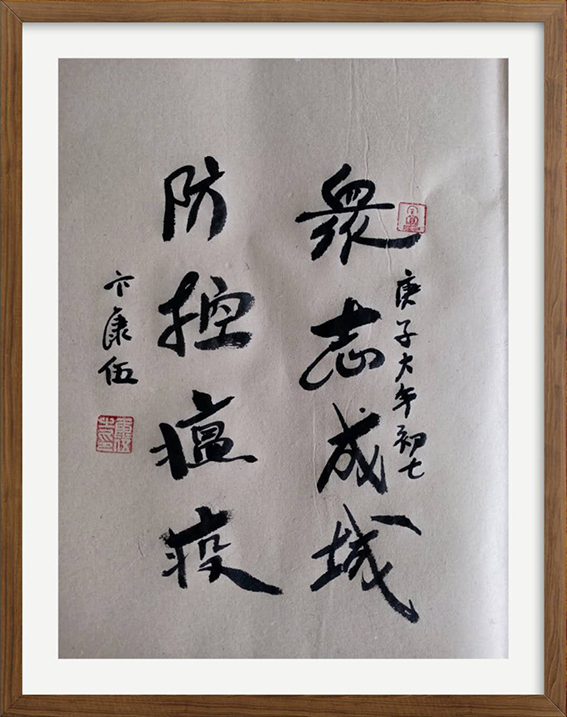 庚子大年初七
衆志成城
防控瘟疫
卞康伍